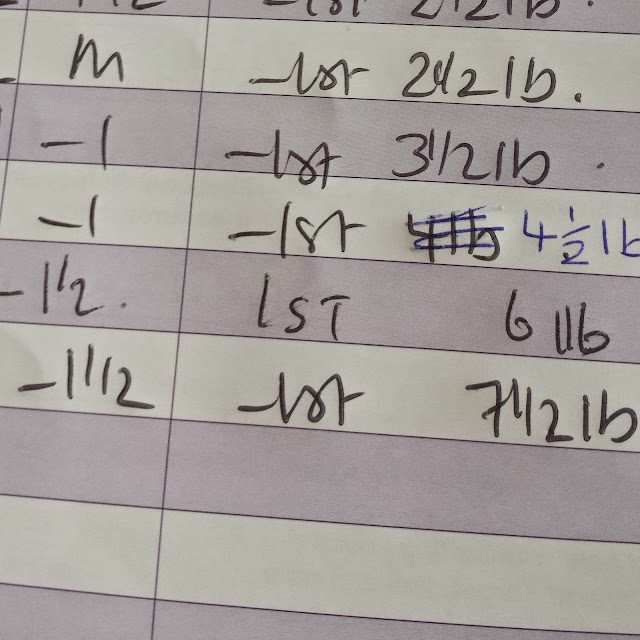 -1st 2 1/2 lb.
M -1st 2 1/2 lb.
-1 -1st 3 1/2 lb.
-1 -1st 4 1/2 lb
-1 1/2. 1ST 6 lb
-1 1/2 -1st 7 1/2 lb